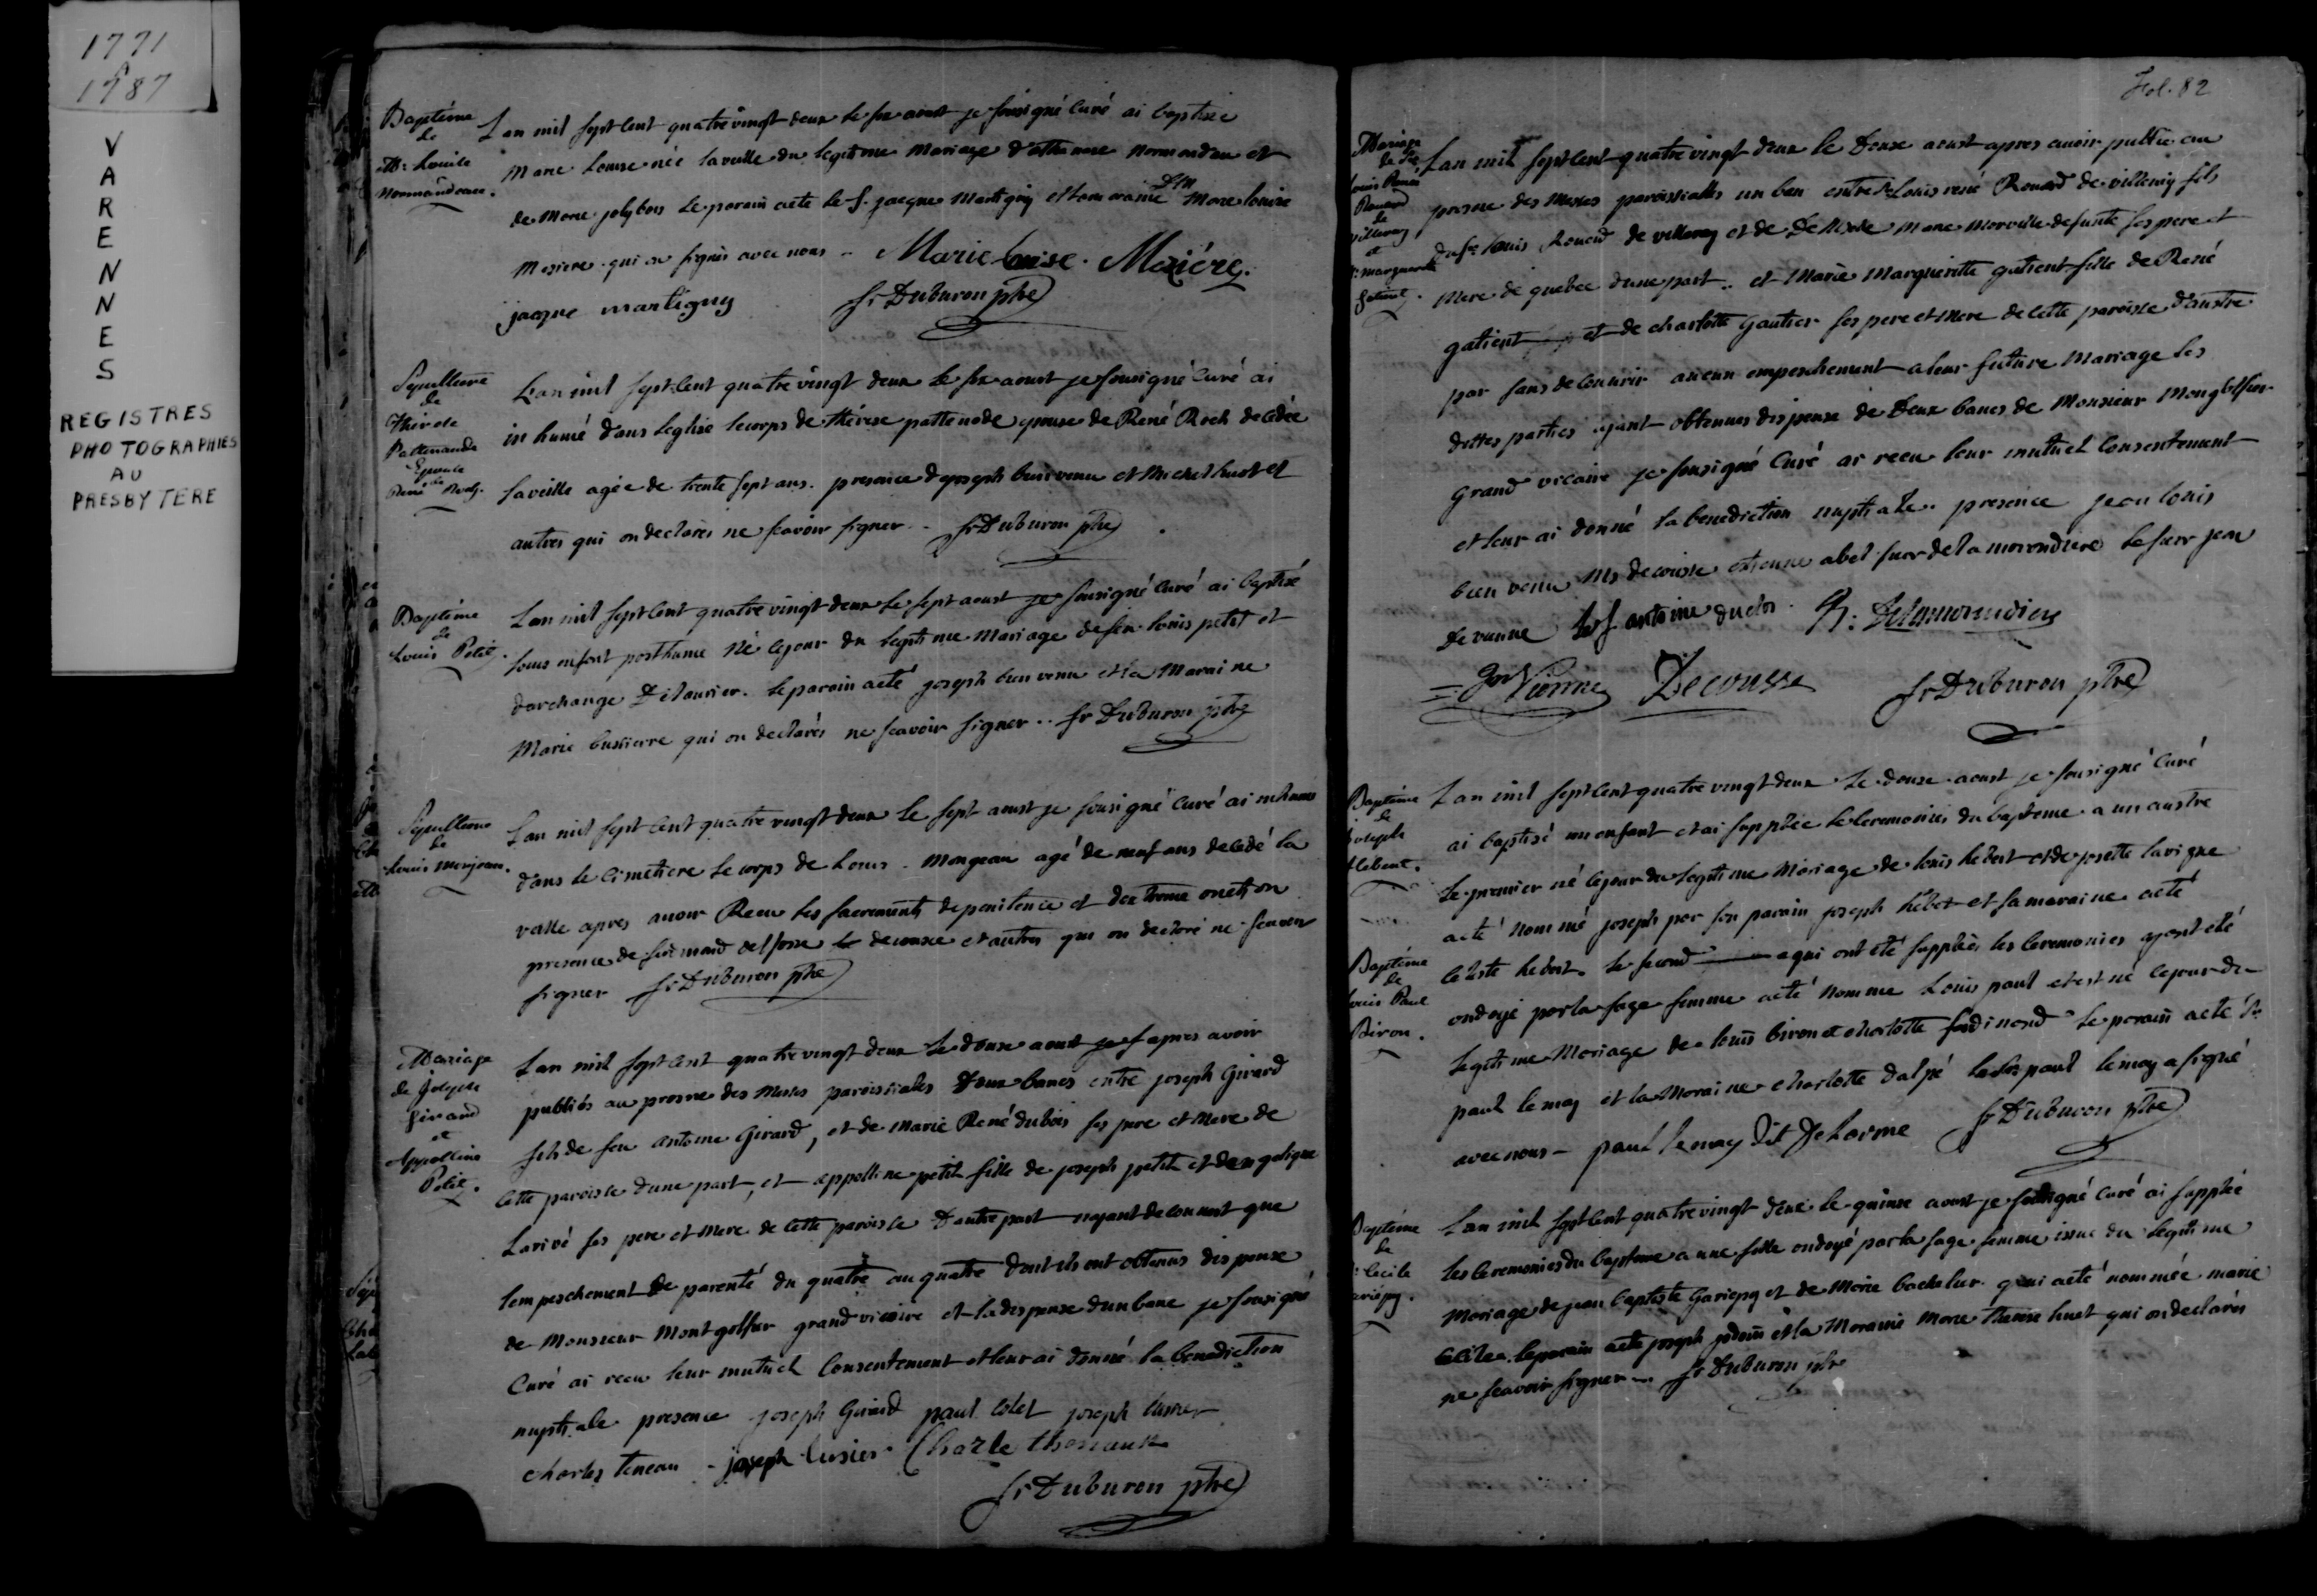 1771
à
1787
VARENNES
REGISTRES
PHOTOGRAPHIES
AU
PRESBYTERE
Baptême
de
M. Louise
Normandeau.
L'an mil sept cent quatre vingt deux le six aoust je sousigné curé ai baptisée
Marie Louise née la veille du legitime Mariage d'athanase normandeau et
de Marie jolybois le parain aeté le S. jacque Martigny et la maraine Dlle Marie louise
Moziere qui on signés avec nous - Marie Louise Maziére.
jacque martigny fr Duburon ptre
Sepulture
de
Therese
Pattenaude
Epouse
de
René Roch.
L'an mil sept cent quatre vingt deux le six aoust je sousigné curé ai
in humé dans leglise lecorps de thérese pattenode epouse de René Roch decedée
la veille agée de trente sept ans. presence de joseph bienvenu et Michel huet et
autres qui on declarés ne scavoir signer - fr Duburon ptre
Baptême
de
Louis Petit.
L'an mil sept cent quatre vingt deux le sept aoust je sousigné curé ai baptisé
louis enfant posthume né lejour du legitime mariage defeu louis petit et
darchange Letourier. le parain aeté joseph bien venu et la Maraine
Marie bussierre qui on declarés ne scavoir signer .. fr Duburon ptre
Sepulture
de
Louis monjeau.
L'an mil sept cent quatre vingt deux le sept aoust je sousigné curé ai inhumé
dans le cimetiere le corps de Louis - Mongeau agé de neuf ans decedé la
veille apres avoir Recu les sacrements de penitence et dextreme onction
presence de decousse et autres qui on declaré ne scavoir
signer fr Duburon ptre
Mariage
de Joseph
Girard
et
Appolline
Petit.
L'an mil sept cent quatre vingt deux le douse aoust apres avoir
publiés au prosne des Messes paroissiales deux bancs entre joseph Girard
fils de feu antoine Girard, et de Marie René dubois ses pere et Mere de
cette paroisse dune part, et appolline petit fille de joseph petit et dangelique
Larivé ses pere et Mere de cette paroisse dautre part nayant decouvert que
lempeschement de parenté du quatre au quatre dont ils ont obtenus dispense
de Monsieur Montgolfier grand vicaire et la dispense dun banc je sousigné
Curé ai recu leur mutuel Consentement et leur ai donné la benediction
nuptiale presence joseph Girard paul colet joseph lusier
charles teneau - joseph lusier Charle
fr Duburon ptre
Fol. 82
Mariage
de Sr
Louis René
Rouard
de
villeray
et
M. marguerite
Gatient.
L'an mil sept cent quatre vingt deux le Douse aoust apres avoir publié au
prosne des Messes paroissialles un ban entre Sr Louis rené Rouard de villeray fils
du Sr louis Rouard de villeray et de Marie Morville defunte ses pere et
Mere de quebec dune part .. et Marie Margueritte gatient fille de René
gatient et de charlotte Gautier ses pere et Mere de cette paroisse d'austre
par sans decouvrir aucun empeschement a leur future Mariage les
dittes parties ajant obtenues dispense de Deux bancs de Monsieur Mongolfier
grand vicaire je sousigné Curé ai recu leur mutuel Consentement
et leur ai donné la benediction nuptiale. presence jean louis
bien venu Mr decousse etienne abel sieur de la morendiere le sieur jean
devienne antoine duclos Delamorandiere
Jn Vienne Decousse fr Duburon ptre
Baptême
de
Joseph
hebert.
L'an mil sept cent quatre vingt deux le douse aoust je sousigné Curé
ai baptisé un enfant et ai supplée le ceremonies du bapteme a un austre
le premier né lejour du legitime Mariage de louis hebert et de josette lavigne
aeté nommé joseph par son parain joseph hebert et la maraine aeté
hebert. le second a qui ont été supplées les ceremonies ajant été
Baptême
de
Louis Paul
Biron.
ondoyé par la sage femme aeté nommé Louis paul et est né cejour du
legitime Mariage de louis biron et charlotte ferdinand le parain aeté Sr
paul lemay et la Maraine charlotte dalpé paul lemay a signé
avec nous - paul lemay dit Delorme fr Duburon ptre
Baptême
de
Cecile
Gariépy.
L'an mil sept cent quatre vingt deux le quinse aoust je sousigné curé ai supplée
les ceremonies du bapteme a une fille ondoyé par la sage femme issue du legitime
Mariage de jean baptiste Gariepy et de Marie bachelur qui aeté nommée marie
cecile. le parain aeté joseph jodoin et la Maraine Marie Therese huet qui on declarés
ne scavoir signer ... fr Duburon ptre